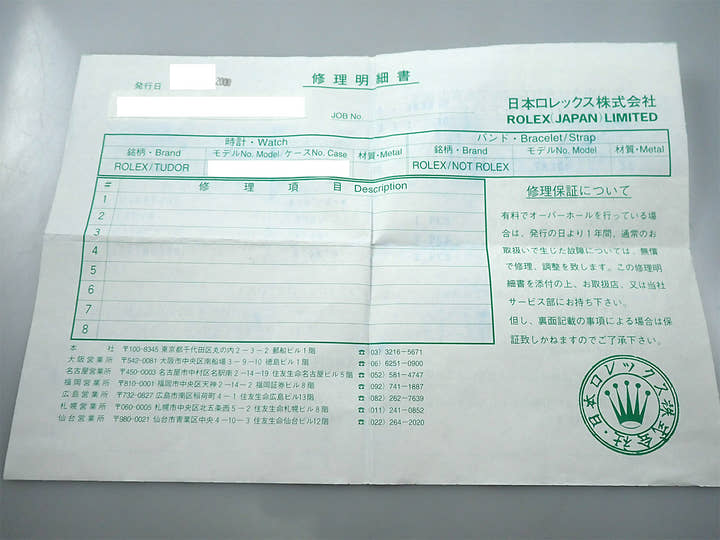 修理明細書
発行日 2000
JOB No.
日本ロレックス株式会社
ROLEX(JAPAN)LIMITED
時計・Watch
バンド・Bracelet/Strap
銘柄・Brand モデルNo. Model ケースNo. Case 材質・Metal
銘柄・Brand モデルNo. Model 材質・Metal
ROLEX/TUDOR
ROLEX/NOT ROLEX
# 修理項目 Description
1
2
3
4
5
6
7
8
修理保証について
有料でオーバーホールを行っている場
合は、発行の日より1年間、通常のお
取扱いで生じた故障については、無償
で修理、調整を致します。この修理明
細書を添付の上、お取扱店、又は当社
サービス部にお持ち下さい。
但し、裏面記載の事項による場合は保
証致しかねますのでご了承下さい。
本社 〒100-8345 東京都千代田区丸の内2-3-2 郵船ビル1階 ☎(03) 3216-5671
大阪営業所 〒542-0081 大阪市中央区南船場3-9-10 徳島ビル1階 ☎(06) 6251-0900
名古屋営業所 〒450-0003 名古屋市中村区名駅南2-14-19 住友生命名古屋ビル5階 ☎(052) 581-4747
福岡営業所 〒810-0001 福岡市中央区天神2-14-2 福岡証券ビル8階 ☎(092) 741-1887
広島営業所 〒732-0827 広島市南区稲荷町4-1 住友生命広島ビル13階 ☎(082) 262-7639
札幌営業所 〒060-0005 札幌市中央区北五条西5-2 住友生命札幌ビル8階 ☎(011) 241-0852
仙台営業所 〒980-0021 仙台市青葉区中央4-10-3 住友生命仙台ビル12階 ☎(022) 264-2020
日本ロレックス株式会社・